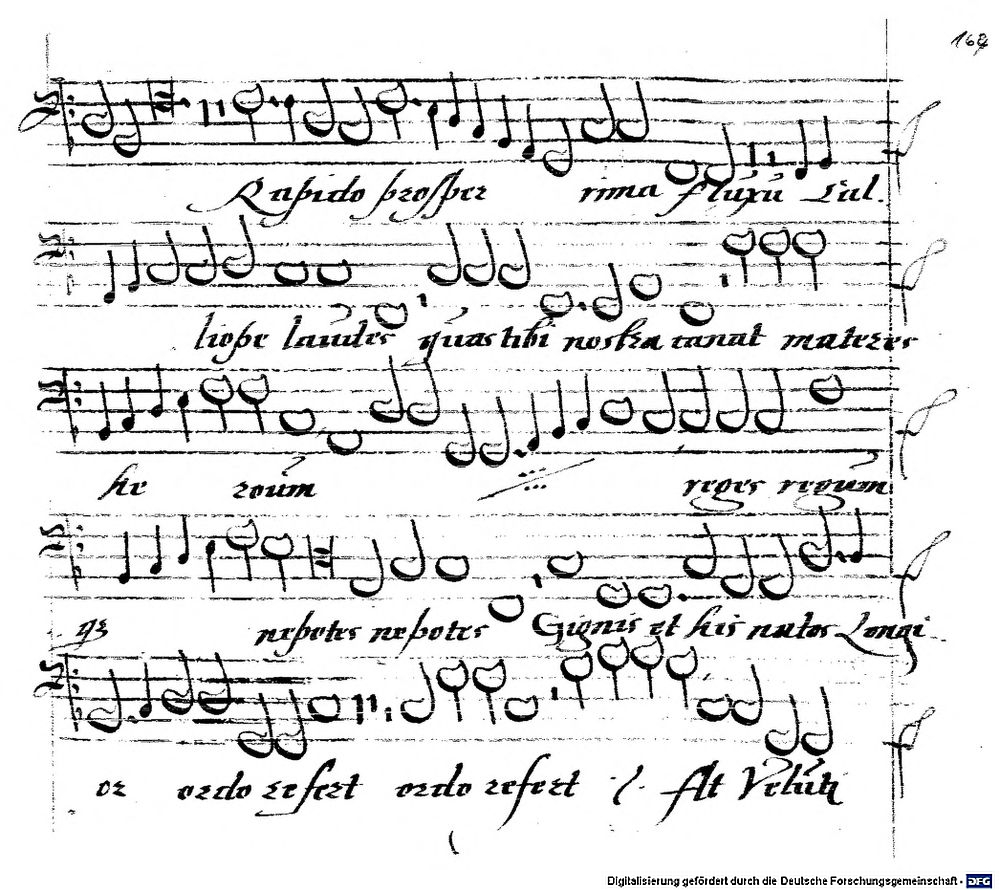 Rapido prosper rima fluxu Cal.
liope laudes quas tibi nostra canat mater es
he roum reges regum
nepotes nepotes Gignis et his natos Longi
or ordo refert ordo refert At Veluti
Digitalisierung gefördert durch die Deutsche Forschungsgemeinschaft - DFG